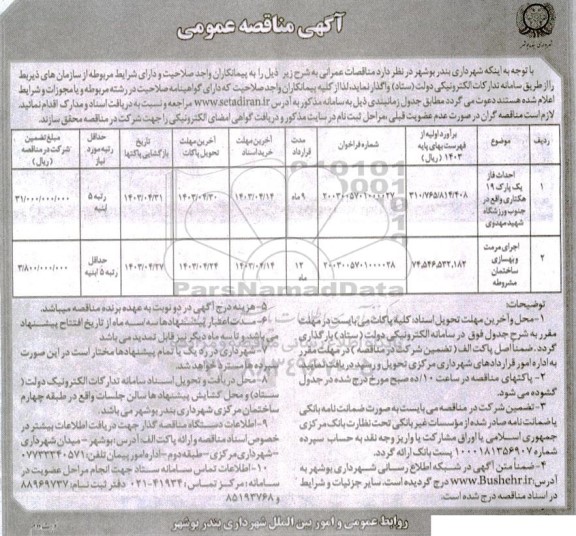 آگهی مناقصه عمومی
با توجه به اینکه شهرداری بندر بوشهر در نظر دارد مناقصات عمرانی به شرح زیر ذیل را به پیمانکاران واجد صلاحیت و دارای شرایط مربوطه از سازمان های ذیربط
را از طریق سامانه تدارکات الکترونیکی دولت (ستاد) واگذار نماید، لذا از کلیه پیمانکاران واجد صلاحیت که دارای گواهینامه صلاحیت در رشته مربوطه و یا مجوزات و شرایط
اعلام شده هستند دعوت می گردد مطابق جدول زمانبندی ذیل به سامانه مذکور به آدرس www.setadiran.ir مراجعه و نسبت به دریافت اسناد و مدارک اقدام نمایند.
لازم است مناقصه گران در صورت عدم عضویت قبلی، مراحل ثبت نام در سایت مذکور و دریافت گواهی امضای الکترونیکی را جهت شرکت در مناقصه محقق سازند.
ردیف موضوع برآورد اولیه از فهرست بهای پایه ۱۴۰۳ (ریال) شماره فراخوان مدت قرارداد آخرین مهلت خرید اسناد آخرین مهلت تحویل پاکات تاریخ بازگشایی پاکتها حداقل رتبه مورد نیاز مبلغ تضمین شرکت در مناقصه (ریال)
۱ احداث فاز یک پارک ۱۹ هکتاری واقع در جنوب ورزشگاه شهید مهدوی ۳۱۰/۷۶۵/۸۱۴/۴۰۸ ۲۰۰۳۰۰۵۷۰۱۰۰۰۰۲۷ ۹ ماه ۱۴۰۳/۰۴/۱۴ ۱۴۰۳/۰۴/۳۰ ۱۴۰۳/۰۴/۳۱ رتبه ۵ ابنیه ۳۱/۰۰۰/۰۰۰/۰۰۰
۲ اجرای مرمت و بهسازی ساختمان مشروطه ۷۴,۵۴۶,۵۳۲,۱۸۲ ۲۰۰۳۰۰۵۷۰۱۰۰۰۰۲۸ ۱۲ ماه ۱۴۰۳/۰۴/۱۴ ۱۴۰۳/۰۴/۲۴ ۱۴۰۳/۰۴/۲۷ حداقل رتبه ۵ ابنیه ۳/۸۰۰/۰۰۰/۰۰۰
ParsNamadData
توضیحات:
۱- محل و آخرین مهلت تحویل اسناد: کلیه پاکات می بایست در مهلت
مقرر به شرح جدول فوق در سامانه الکترونیکی دولت (ستاد) بارگذاری
گردد. ضمناً اصل پاکت الف (تضمین شرکت در مناقصه) در مهلت مقرر
به اداره امور قراردادهای شهرداری مرکزی تحویل و رسید دریافت نمایند.
۲- پاکتهای مناقصه در ساعت ۱۰/ده صبح مورخ درج شده در جدول
گشوده می شود.
۳- تضمین شرکت در مناقصه می بایست به صورت ضمانت نامه بانکی
یا ضمانت نامه صادر شده از مؤسسات غیر بانکی تحت نظارت بانک مرکزی
جمهوری اسلامی یا اوراق مشارکت یا واریز وجه نقد به حساب سپرده
شماره ۱۰۰۰۱۸۱۳۵۶۹۰۷ پست بانک ارائه گردد.
۴- ضمناً متن آگهی در شبکه اطلاع رسانی شهرداری بوشهر به
آدرس www.Bushehr.ir درج گردیده است. سایر جزئیات و شرایط
در اسناد مناقصه درج شده است.
۵- هزینه درج آگهی در دو نوبت به عهده برنده مناقصه میباشد.
۶- مدت اعتبار پیشنهادها سه ماه از تاریخ افتتاح پیشنهاد
باشد و تا سه ماه دیگر نیز قابل تمدید می باشد.
۷- شهرداری در رد یک یا تمام پیشنهادها مختار است در این صورت
سپرده مسترد خواهد شد.
۸- محل دریافت و تحویل اسناد سامانه تدارکات الکترونیک دولت (
ستاد) و محل گشایش پیشنهاد ها سالن جلسات واقع در طبقه چهارم
ساختمان مرکزی شهرداری بندر بوشهر می باشد.
۹- اطلاعات دستگاه مناقصه گذار جهت دریافت اطلاعات بیشتر در
خصوص اسناد مناقصه و ارائه پاکت الف: آدرس: بوشهر - میدان شهرداری
- شهرداری مرکزی - طبقه دوم - اداره امور پیمان تلفن: ۰۷۷۳۳۳۴۰۵۷۱
۱۰- اطلاعات تماس سامانه ستاد جهت انجام مراحل عضویت در
سامانه: مرکز تماس: ۴۱۹۳۴-۰۲۱ دفتر ثبت نام: ۸۸۹۶۹۷۳۷
و ۸۵۱۹۳۷۶۸
روابط عمومی و امور بین الملل شهرداری بندر بوشهر